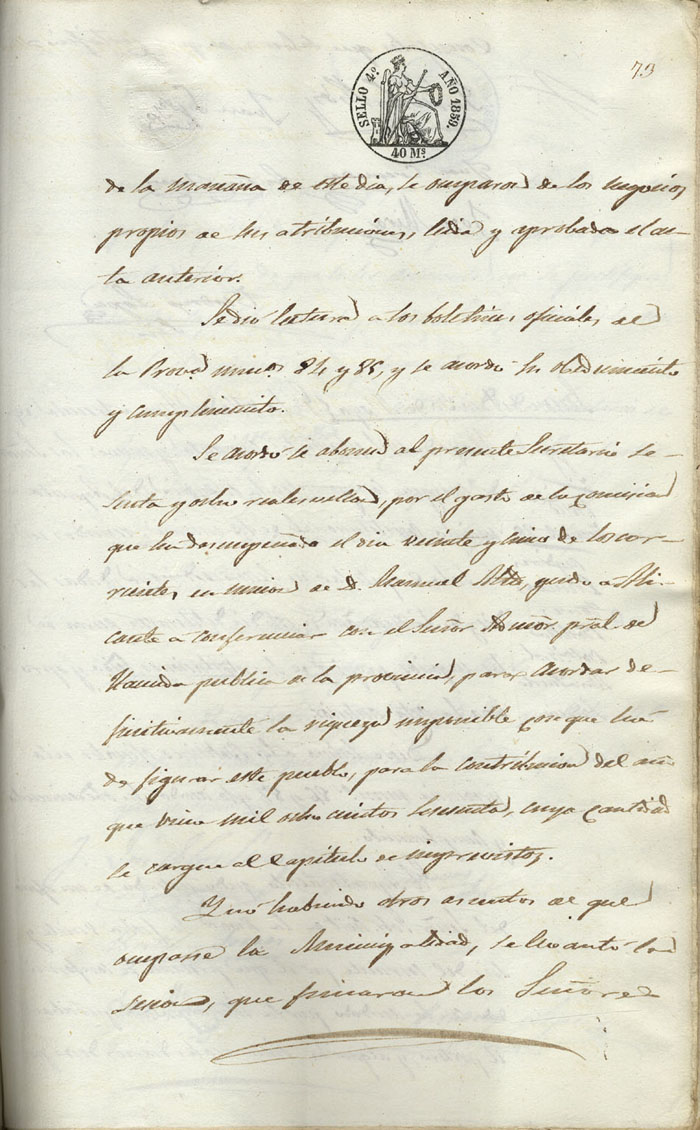 73
SELLO 4º AÑO 1859.
40 Ms
de la mañana de este dia, se ocuparon de los negocios
propios de sus atribuciones, leida y aprobada el ac-
ta anterior.
Se dio lectura a los boletines oficiales de
la Prova numos 84 y 85, y se acordó su obedecimiento
y cumplimiento.
Se acordó se abonen al presente Secretario se-
senta y ocho reales vellon, por el gasto de la comision
que ha desempeñado el dia veinte y cinco de los cor-
rientes, en union de D. Manuel, quedó a Ali-
cante a conferenciar con el Señor Admor. pral. de
Hacienda publica de la provincia, para acordar de-
finitivamente la riqueza imponible con que há
de figurar este pueblo, para la contribucion del año
que viene mil ochocientos sesenta, cuya cantidad
se cargue al Capitulo de imprevistos.
Y no habiendo otros asuntos de que
ocuparse la Municipalidad, se levantó la
sesion, que firmaron los Señores